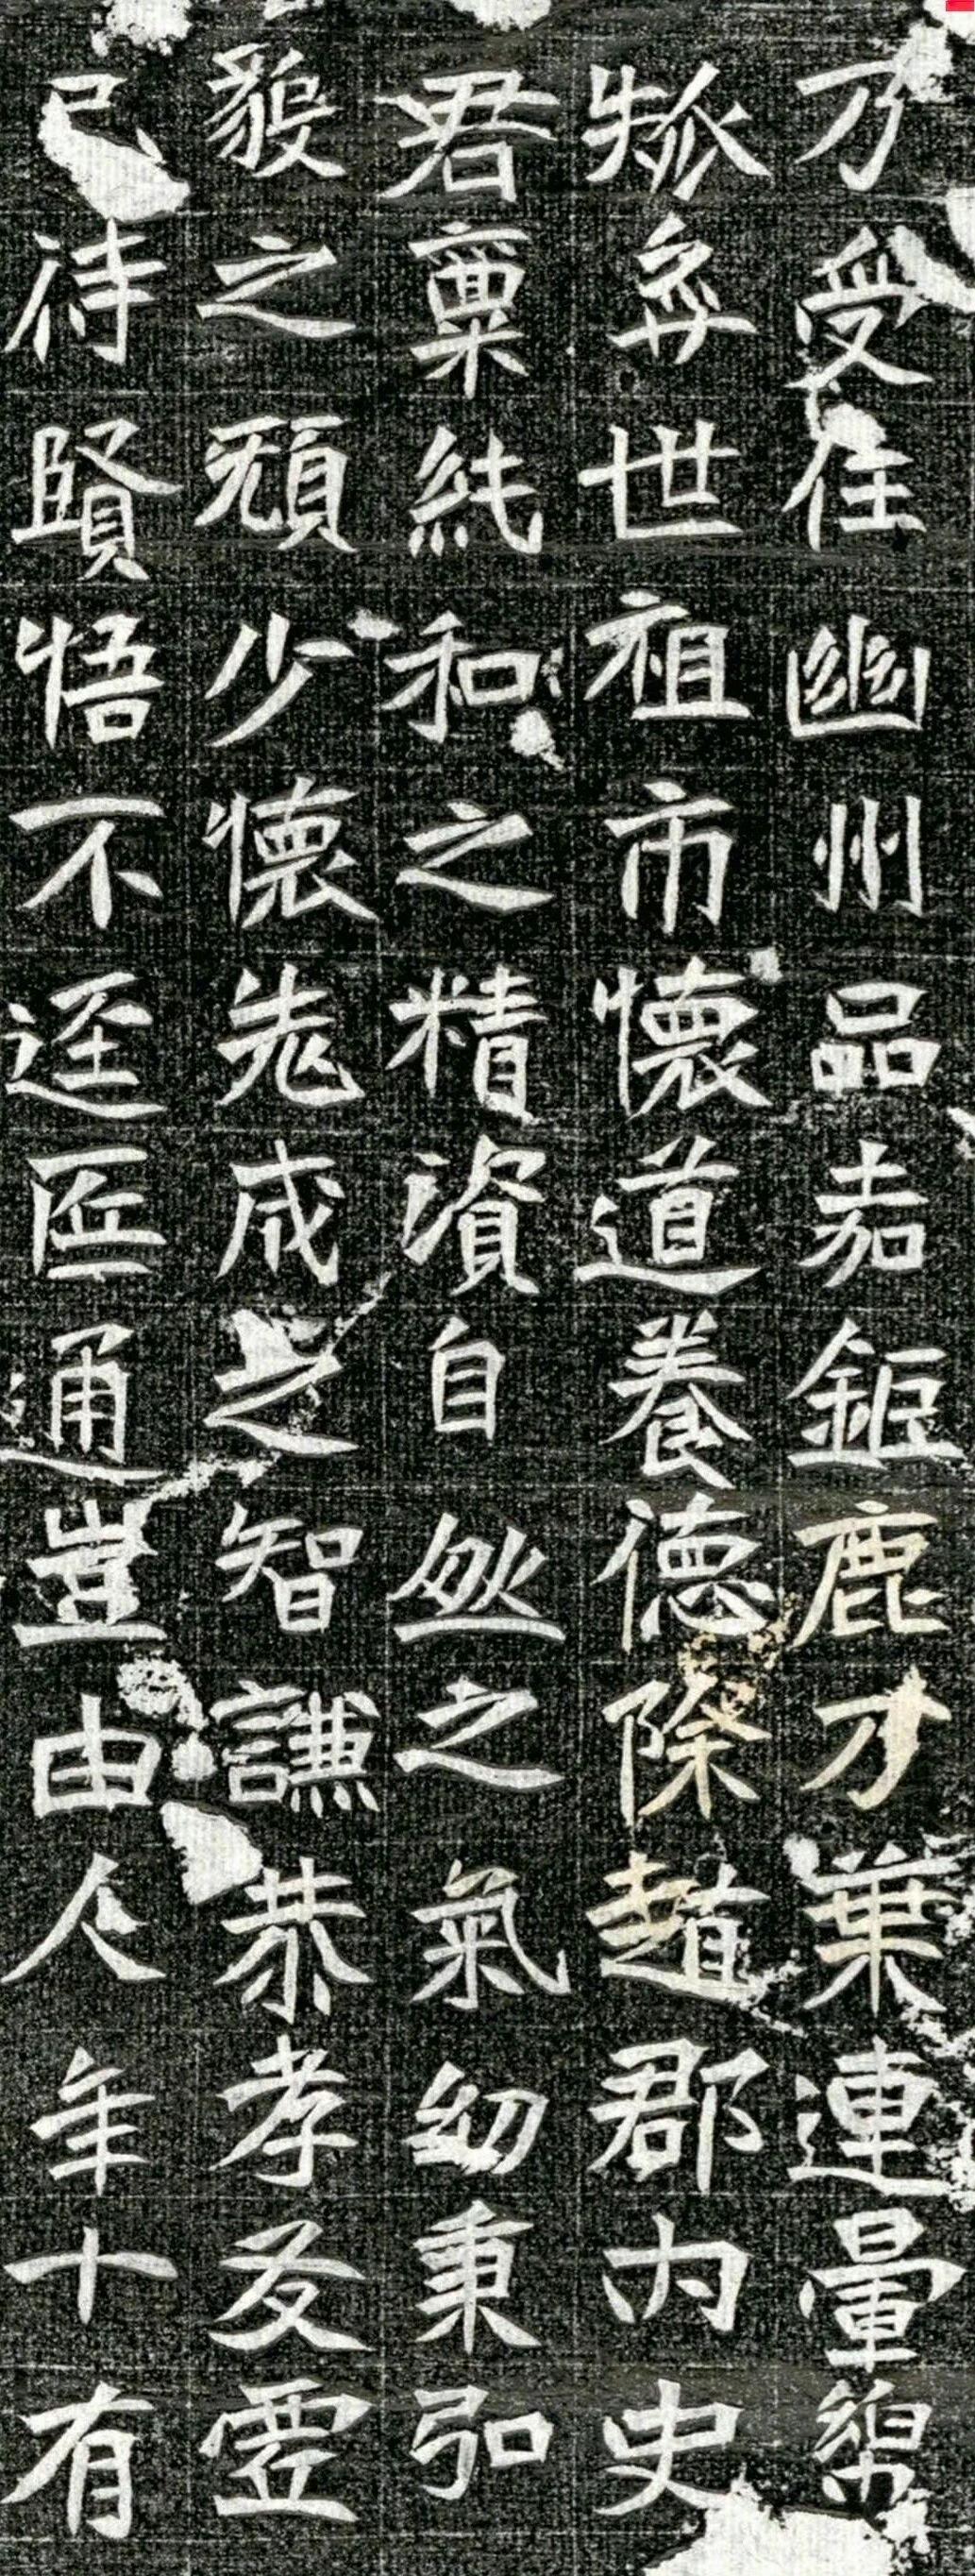 才受任幽州品嘉鉅鹿才葉連暈緜
弥弈世祖市懷道養德除趙郡内史
君稟純和之精資自然之氣幼秉弘
毅之願少懷老成之智謙恭孝友虛
己待賢悟不逕匠通豈由人年十有